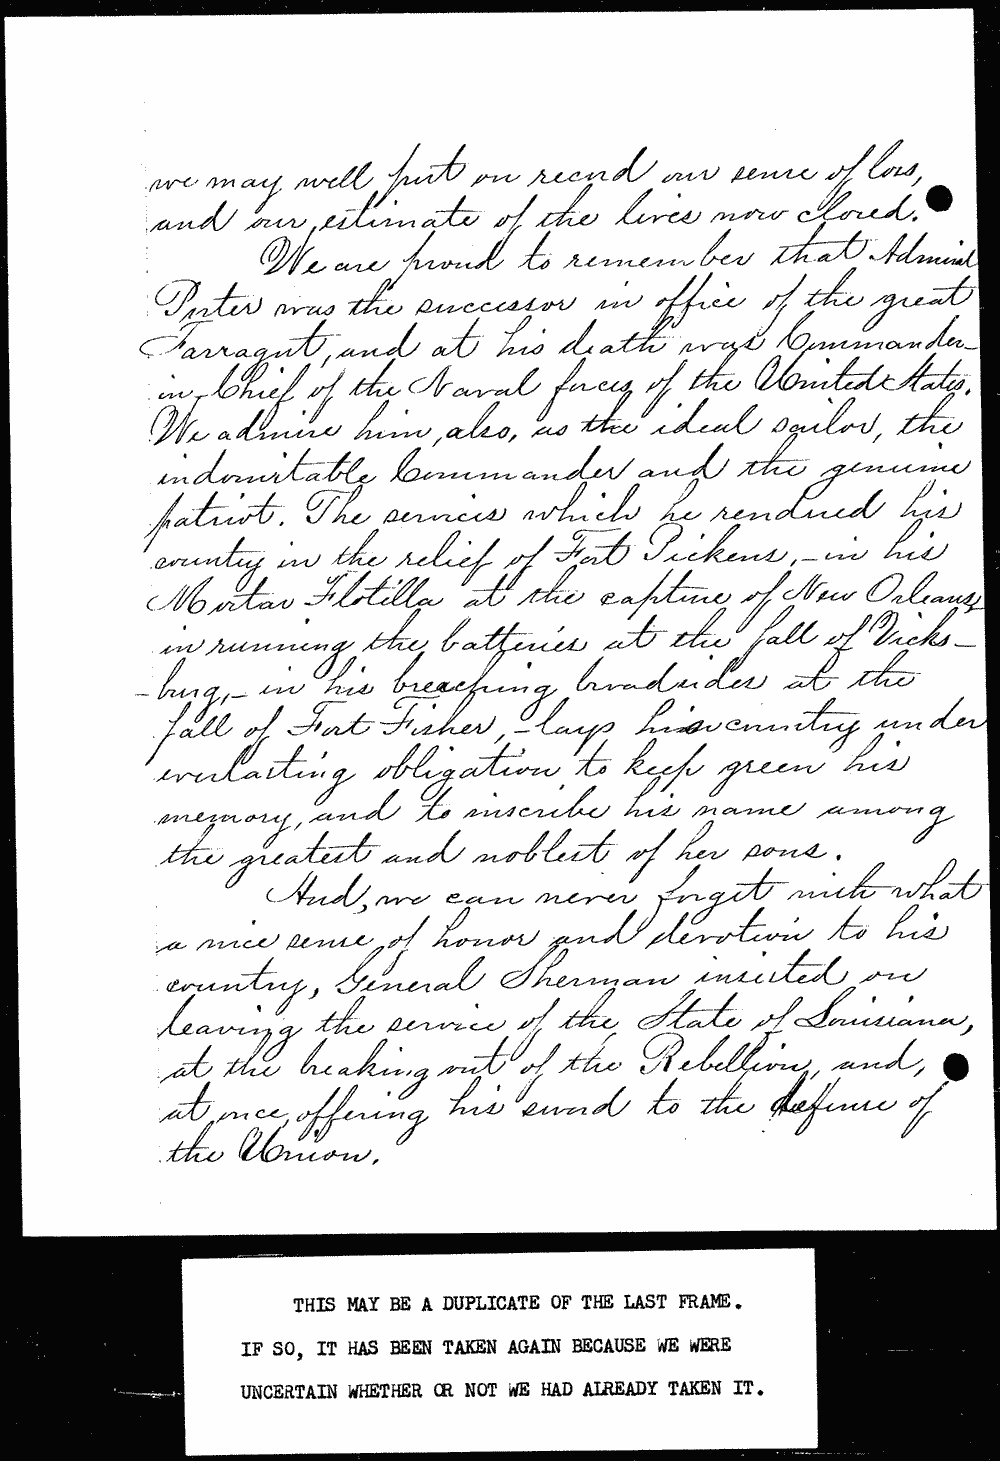 we may well put on record our sense of loss,
and our estimate of the lives now closed.
We are proud to remember that Admiral
Porter was the successor in office of the great
Farragut, and at his death was Commander-
in-Chief of the Naval forces of the United States.
We admire him, also, as the ideal sailor, the
indomitable Commander and the genuine
patriot. The services which he rendered his
country in the relief of Fort Pickens, - in his
Mortar Flotilla at the capture of New Orleans,
in running the batteries at the fall of Vicks-
-burg, - in his breaching broadsides at the
fall of Fort Fisher, - lays his country under
everlasting obligation to keep green his
memory, and to inscribe his name among
the greatest and noblest of her sons.
And, we can never forget with what
a nice sense of honor and devotion to his
country, General Sherman insisted on
leaving the service of the State of Louisiana,
at the breaking out of the Rebellion, and,
at once, offering his sword to the defense of
the Union.
THIS MAY BE A DUPLICATE OF THE LAST FRAME.
IF SO, IT HAS BEEN TAKEN AGAIN BECAUSE WE WERE
UNCERTAIN WHETHER OR NOT WE HAD ALREADY TAKEN IT.